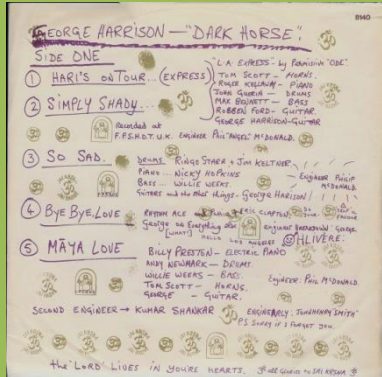 8140
GEORGE HARRISON — "DARK HORSE".
SIDE ONE
"L.A. EXPRESS" - by Permission "ODE"
① HARI'S ON TOUR... (EXPRESS)
TOM SCOTT - HORNS.
ROGER KELLAWAY - PIANO
JOHN GUERIN - DRUMS
② SIMPLY SHADY...
MAX BENNETT - BASS
ROBBEN FORD - GUITAR.
GEORGE HARRISON - GUITAR
Recorded at
F.P.S.H.O.T. U.K. ENGINEER Phil "ANGEL" McDONALD.
③ SO SAD.
DRUMS RINGO STARR + JIM KELTNER
PIANO... NICKY HOPKINS
BASS... WILLIE WEEKS.
GUITARS and the other things - GEORGE HARISON
ENGINEER PHILIP McDONALD.
④ BYE BYE, LOVE
RHYTHM ACE
ERIC CLAPTON.
George on Everything else
HELLO LOS ANGELES
OHLIVERE.
⑤ MĀYA LOVE
BILLY PRESTON - ELECTRIC PIANO
ANDY NEWMARK - DRUMS.
WILLIE WEEKS - BASS.
TOM SCOTT - HORNS.
GEORGE - GUITAR.
Engineer. PHIL McDONALD.
SECOND ENGINEER → KUMAR SHANKAR
P.S. Sorry if I forgot you.
the 'LORD' LIVES IN YOU'RE HEARTS. ॐ all Glories to SRI KRSNA ॐ